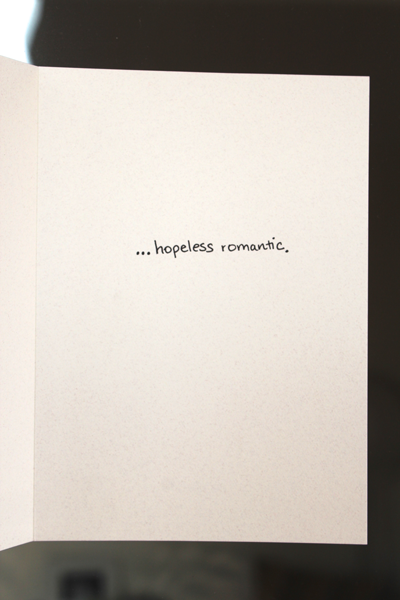 ...hopeless romantic.